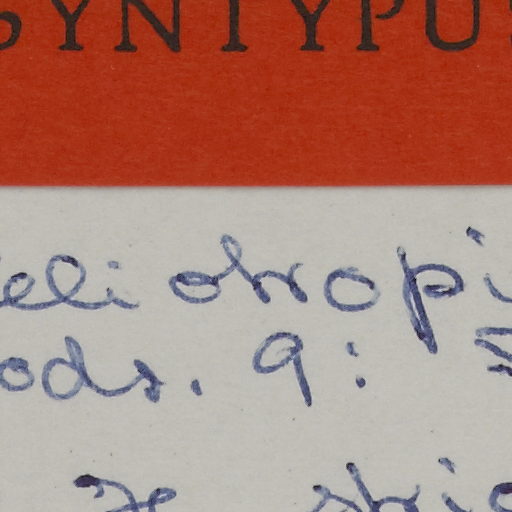 SYNTYPUS
eli otropi
ods. 9: 5